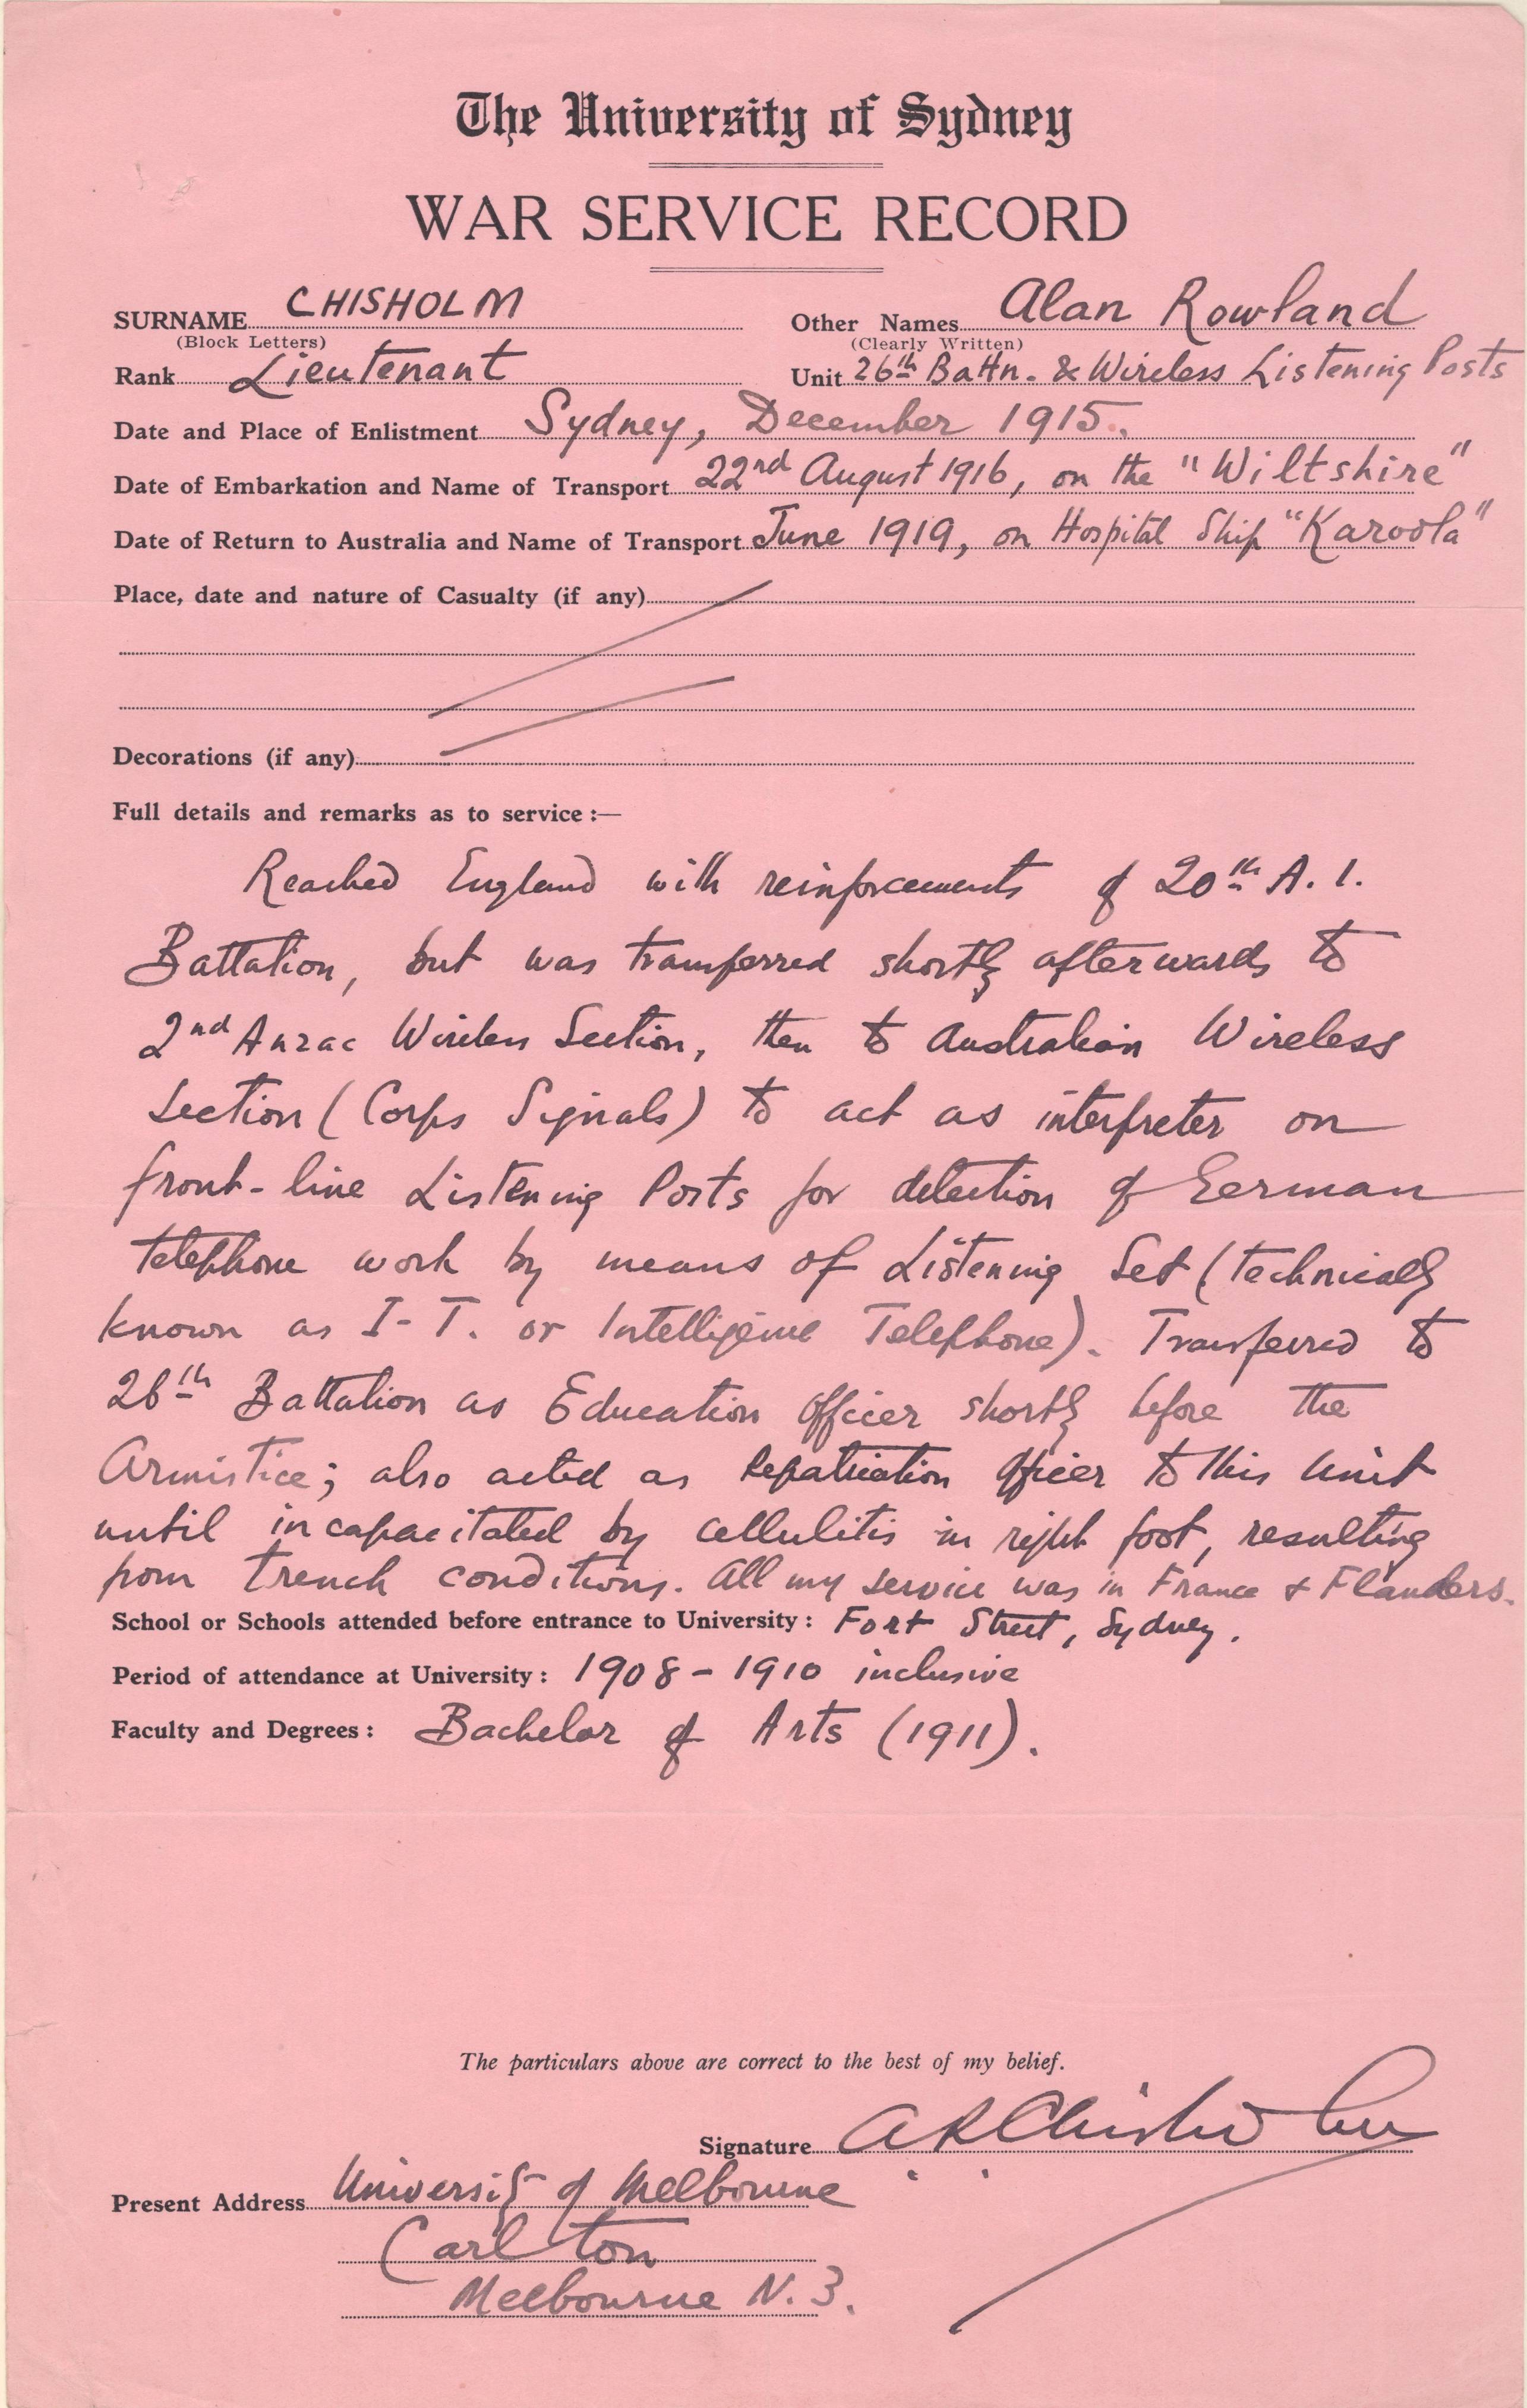 The University of Sydney
WAR SERVICE RECORD
SURNAME CHISHOLM Other Names Alan Rowland
(Block Letters) (Clearly Written)
Rank Lieutenant Unit 26th Battn. & Wireless Listening Posts
Date and Place of Enlistment Sydney, December 1915.
Date of Embarkation and Name of Transport 22nd August 1916, on the "Wiltshire"
Date of Return to Australia and Name of Transport June 1919, on Hospital Ship "Karoola"
Place, date and nature of Casualty (if any)
Decorations (if any)
Full details and remarks as to service :—
Reached England with reinforcements of 20th A. I.
Battalion, but was transferred shortly afterwards to
2nd Anzac Wireless Section, then to Australian Wireless
Section (Corps Signals) to act as interpreter on
front-line Listening Posts for detection of German
telephone work by means of Listening Set (technically
known as I-T. or Intelligence Telephone). Transferred to
26th Battalion as Education Officer shortly before the
Armistice; also acted as Repatriation Officer to this Unit
until incapacitated by cellulitis in right foot, resulting
from trench conditions. All my service was in France & Flanders.
School or Schools attended before entrance to University : Fort Street, Sydney.
Period of attendance at University : 1908 - 1910 inclusive
Faculty and Degrees : Bachelor of Arts (1911).
The particulars above are correct to the best of my belief.
Signature A R Chisholm
Present Address University of Melbourne
Carlton
Melbourne N. 3.